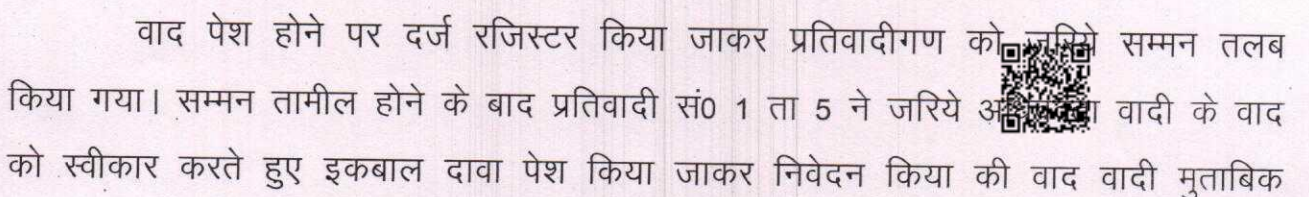 वाद पेश होने पर दर्ज रजिस्टर किया जाकर प्रतिवादीगण को जरिये सम्मन तलब
किया गया। सम्मन तामील होने के बाद प्रतिवादी सं0 1 ता 5 ने जरिये वादी के वाद
को स्वीकार करते हुए इकबाल दावा पेश किया जाकर निवेदन किया की वाद वादी मुताबिक